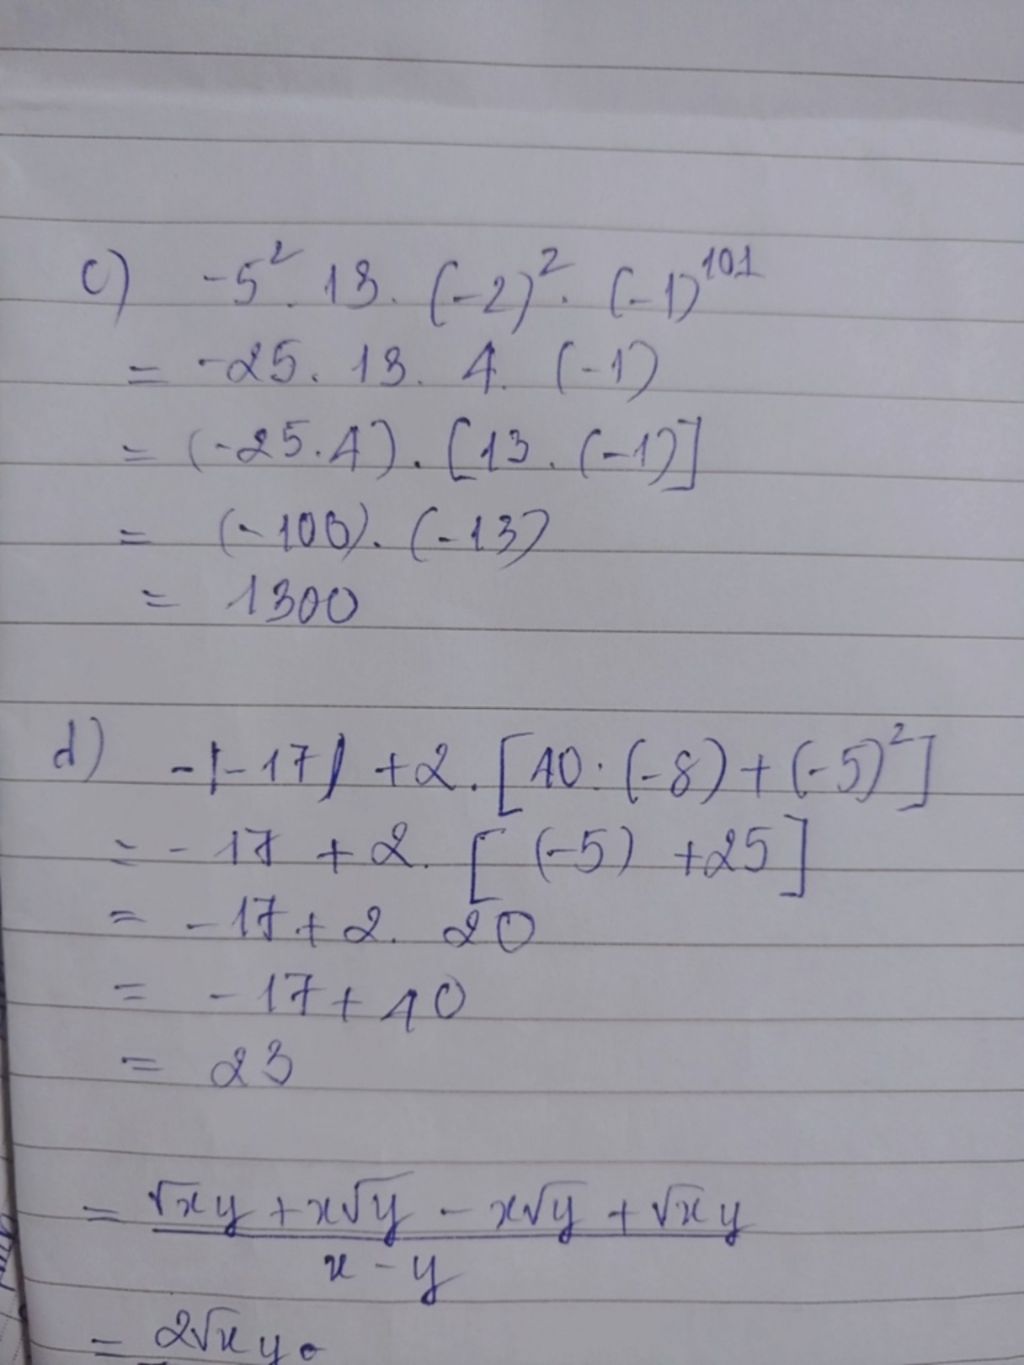 c) -5². 13. (-2)². (-1)¹⁰¹
= -25. 13. 4. (-1)
= (-25.4). [13. (-1)]
= (-100). (-13)
= 1300
d) -|-17| +2. [40: (-8) + (-5)²]
= - 17 + 2. [ (-5) +25]
= - 17 + 2. 20
= - 17 + 40
= 23
= √x y + x√y - x√y + √x y
x - y
= 2√x y